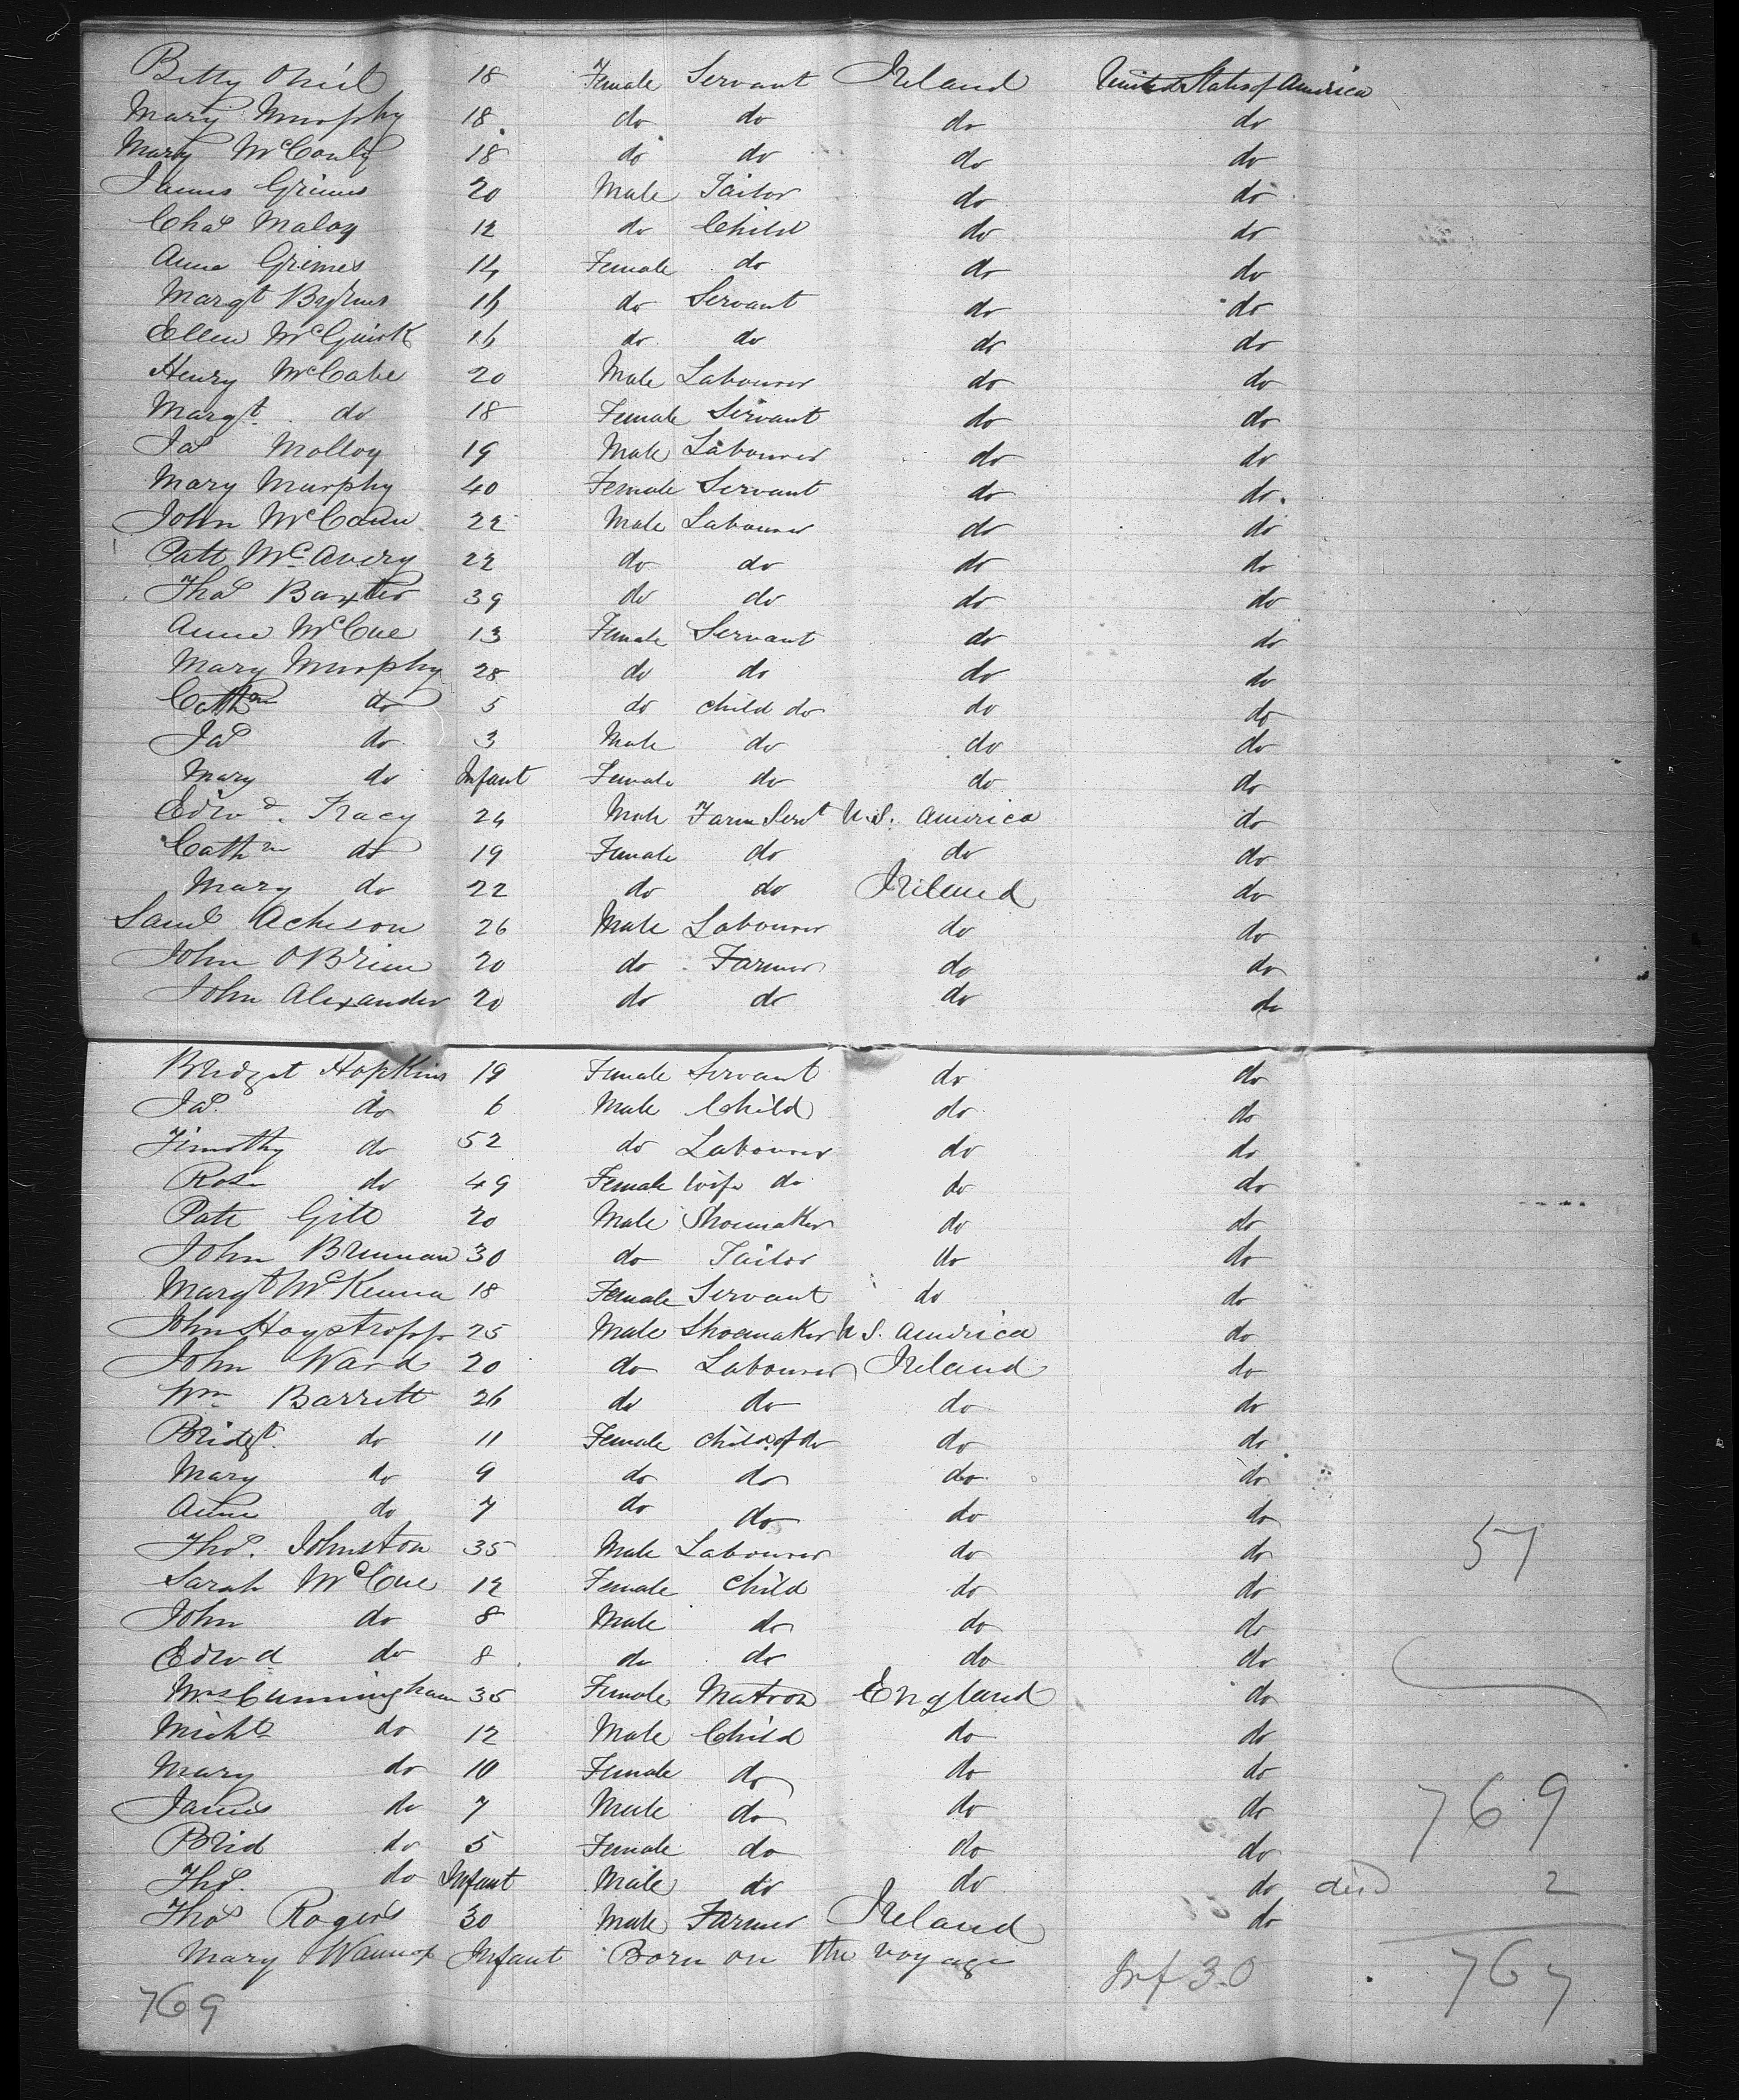 Betty ONeil 18 Female Servant Ireland United States of America
Mary Murphy 18 do do do do
Mary McConly 18 do do do do
James Grimes 20 Male Tailor do do
Chas Maloy 12 do Child do do
Anne Grimes 14 Female do do do
Margt Byrnes 16 do Servant do do
Ellen McGuirk 16 do do do do
Henry McCabe 20 Male Labourer do do
Margt do 18 Female Servant do do
Jas Molloy 19 Male Labourer do do
Mary Murphy 40 Female Servant do do
John McCann 22 Male Labourer do do
Patt McAvery 22 do do do do
Thos Baxter 39 do do do do
Anne McCue 13 Female Servant do do
Mary Murphy 28 do do do do
Cathne do 5 do child do do do
Jas do 3 Male do do do
Mary do Infant Female do do do
Edwd. Tracy 24 Male Farm Servt U.S. America do
Cathne do 19 Female do do do
Mary do 22 do do Ireland do
Saml Acheson 26 Male Labourer do do
John OBrien 20 do Farmer do do
John Alexander 20 do do do do
Bridget Hopkins 19 Female Servant do do
Jas. do 6 Male Child do do
Timothy do 52 do Labourer do do
Rose do 49 Female wife do do do
Patt Gill 20 Male Shoemaker do do
John Brennan 30 do Tailor do do
Margt McKenna 18 Female Servant do do
John Haystropp 25 Male Shoemaker U S. America do
John Ward 20 do Labourer Ireland do
Wm Barrett 26 do do do do
Bridgt. do 11 Female child of do do do
Mary do 9 do do do do
Anne do 7 do do do do
Thos. Johnston 35 Male Labourer do do 57
Sarah McCue 12 Female Child do do
John do 8 Male do do do
Edwd do 8 do do do do
Mrs Cunningham 35 Female Matron England do
Michl do 12 Male Child do do
Mary do 10 Female do do do
James do 7 Male do do do 769
Brid do 5 Female do do do
Thos. do Infant Male do do do died 2
Thos Rogers 30 Male Farmer Ireland do
Mary Wannop Infant Born on the voyage
Inf 30 767
769